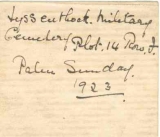 Lyssenthock. Military
Cemetery Plot. 14 Row. J.
Palm Sunday.
1923